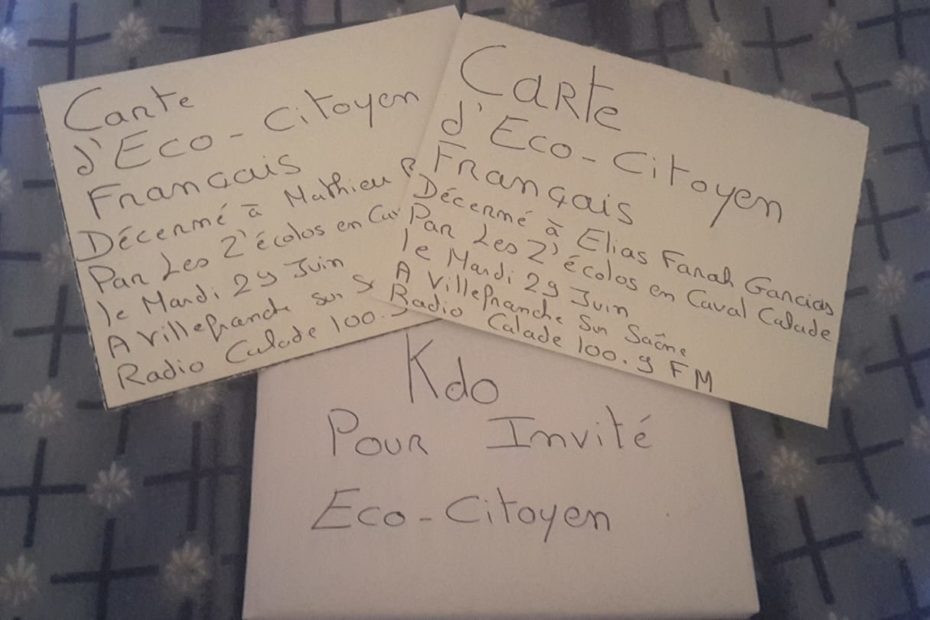 Carte
d'Eco-Citoyen
Français
Décerné à Mathieu
Par Les Z'écolos en
le Mardi 29 Juin
A Villefranche sur
Radio Calade 100.9
Carte
d'Eco-Citoyen
Français
Décerné à Elias Farah Garcias
Par Les Z'écolos en Caval Calade
le Mardi 29 Juin
A Villefranche Sur Saône
Radio Calade 100.9 FM
Kdo
Pour Invité
Eco-Citoyen